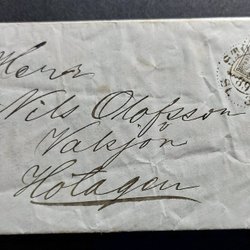 Herr
Nils Olofsson
Valsjön
Hotagen